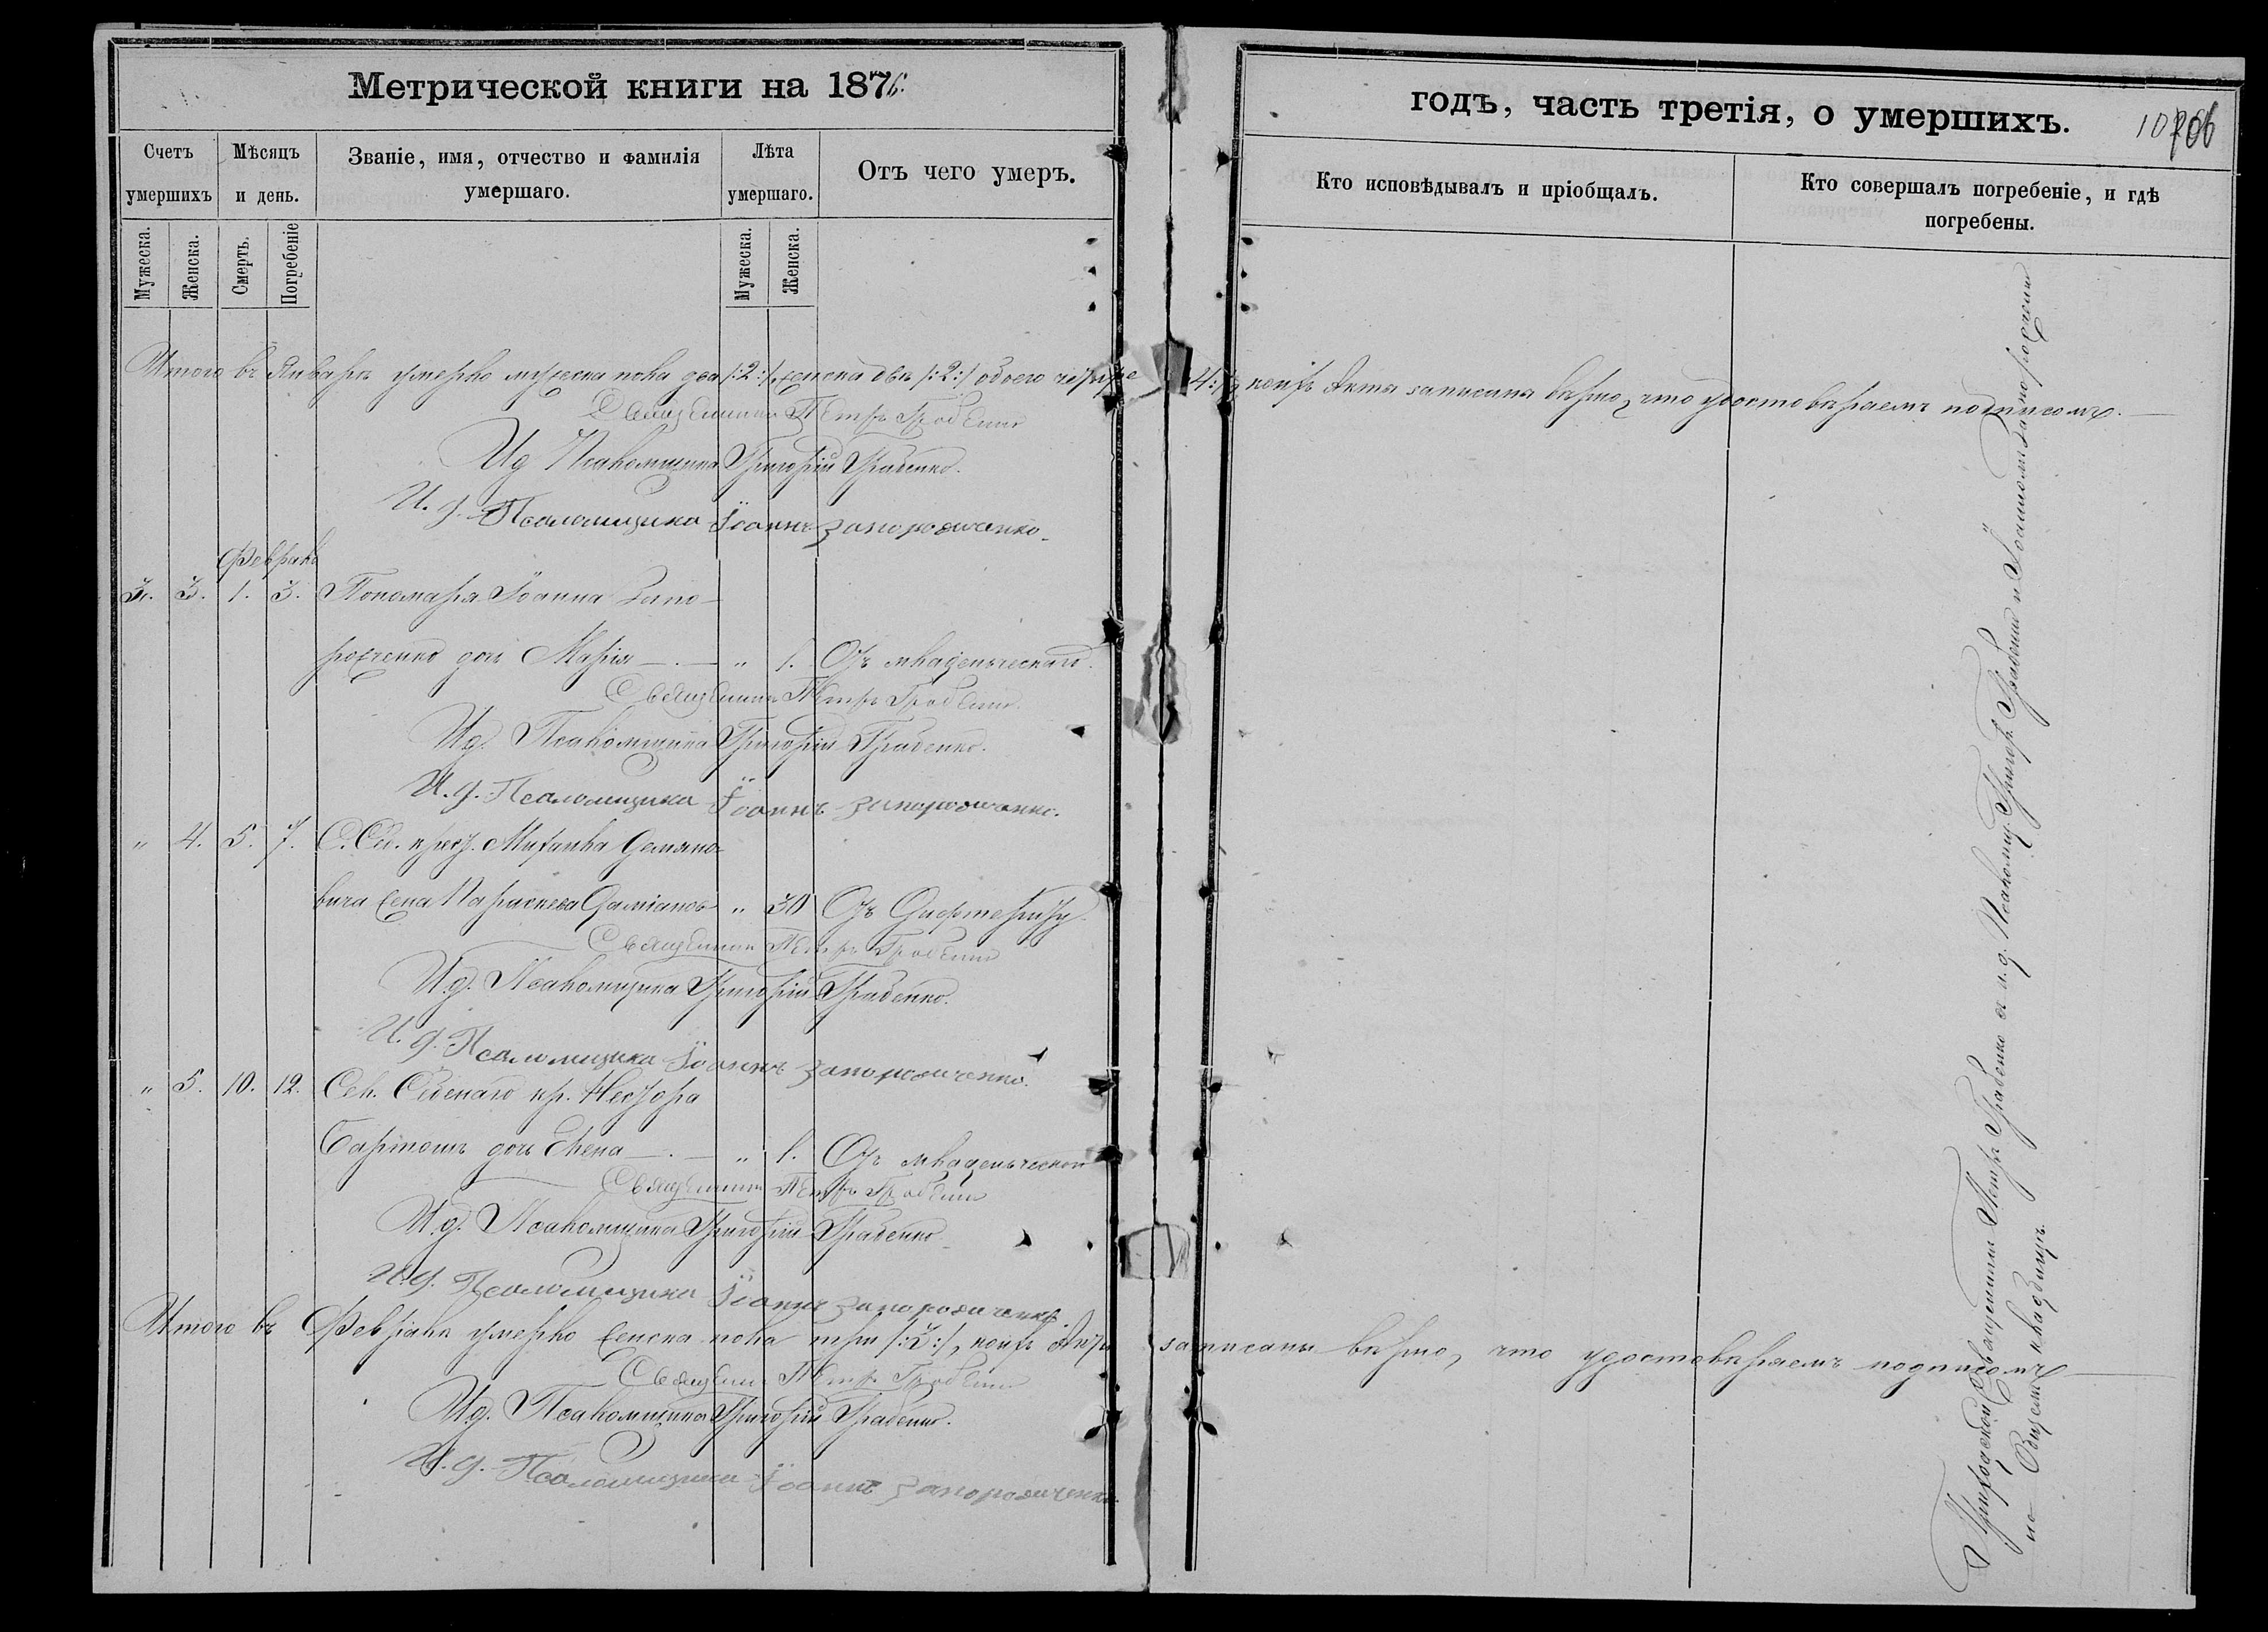 Метрической книги на 1876.
годъ, часть третія, о умершихъ.
106
Счетъ умершихъ
Мѣсяцъ и день.
Званіе, имя, отчество и фамилія умершаго.
Лѣта умершаго.
Отъ чего умеръ.
Кто исповѣдывалъ и пріобщалъ.
Кто совершалъ погребеніе, и гдѣ погребены.
Мужеска.
Женска.
Смерть.
Погребеніе
Мужеска.
Женска.
Итого въ Январѣ умерло мужеска пола два /:2:/, женска двѣ /:2:/ обоего четыре /:4:/, коихъ Акты записаны вѣрно, что удостовѣряемъ подписомъ.
Священникъ Петръ Грабенко
И д Псаломщика Григорій Грабенко.
И. д. Псаломщика Іоаннъ Запорожченко.
Февраль
3. 3. 1. 3. Пономаря Іоанна Запо-
рожченко дочь Марія — „ 1. Отъ младенческаго.
Священникъ Петръ Грабенко
И д. Псаломщика Григорій Грабенко.
И. д. Псаломщика Іоаннъ Запорожченко.
„ 4. 5. 7. крест. Михаила Демяно-
вича жена Параскева „ 30 Отъ
Священникъ Петръ Грабенко
И д. Псаломщика Григорій Грабенко.
И. д. Псаломщика Іоаннъ Запорожченко.
„ 5. 10. 12. Сел. кр. Нестора
дочь Елена — „ 1. Отъ младенческой
Священникъ Петръ Грабенко
И д. Псаломщика Григорій Грабенко
И. д. Псаломщика Іоаннъ Запорожченко.
Итого въ Февралѣ умерло женска пола три /:3:/, коихъ Акты записаны вѣрно, что удостовѣряемъ подписомъ
Священникъ Петръ Грабенко
И д. Псаломщика Григорій Грабенко.
И. д. Псаломщика Іоаннъ Запорожченко
Приходской Священникъ Петръ Грабенко съ и. д. Псаломщ. Григор. Грабенко и Іоанномъ Запорожченко
на Общемъ кладбищѣ